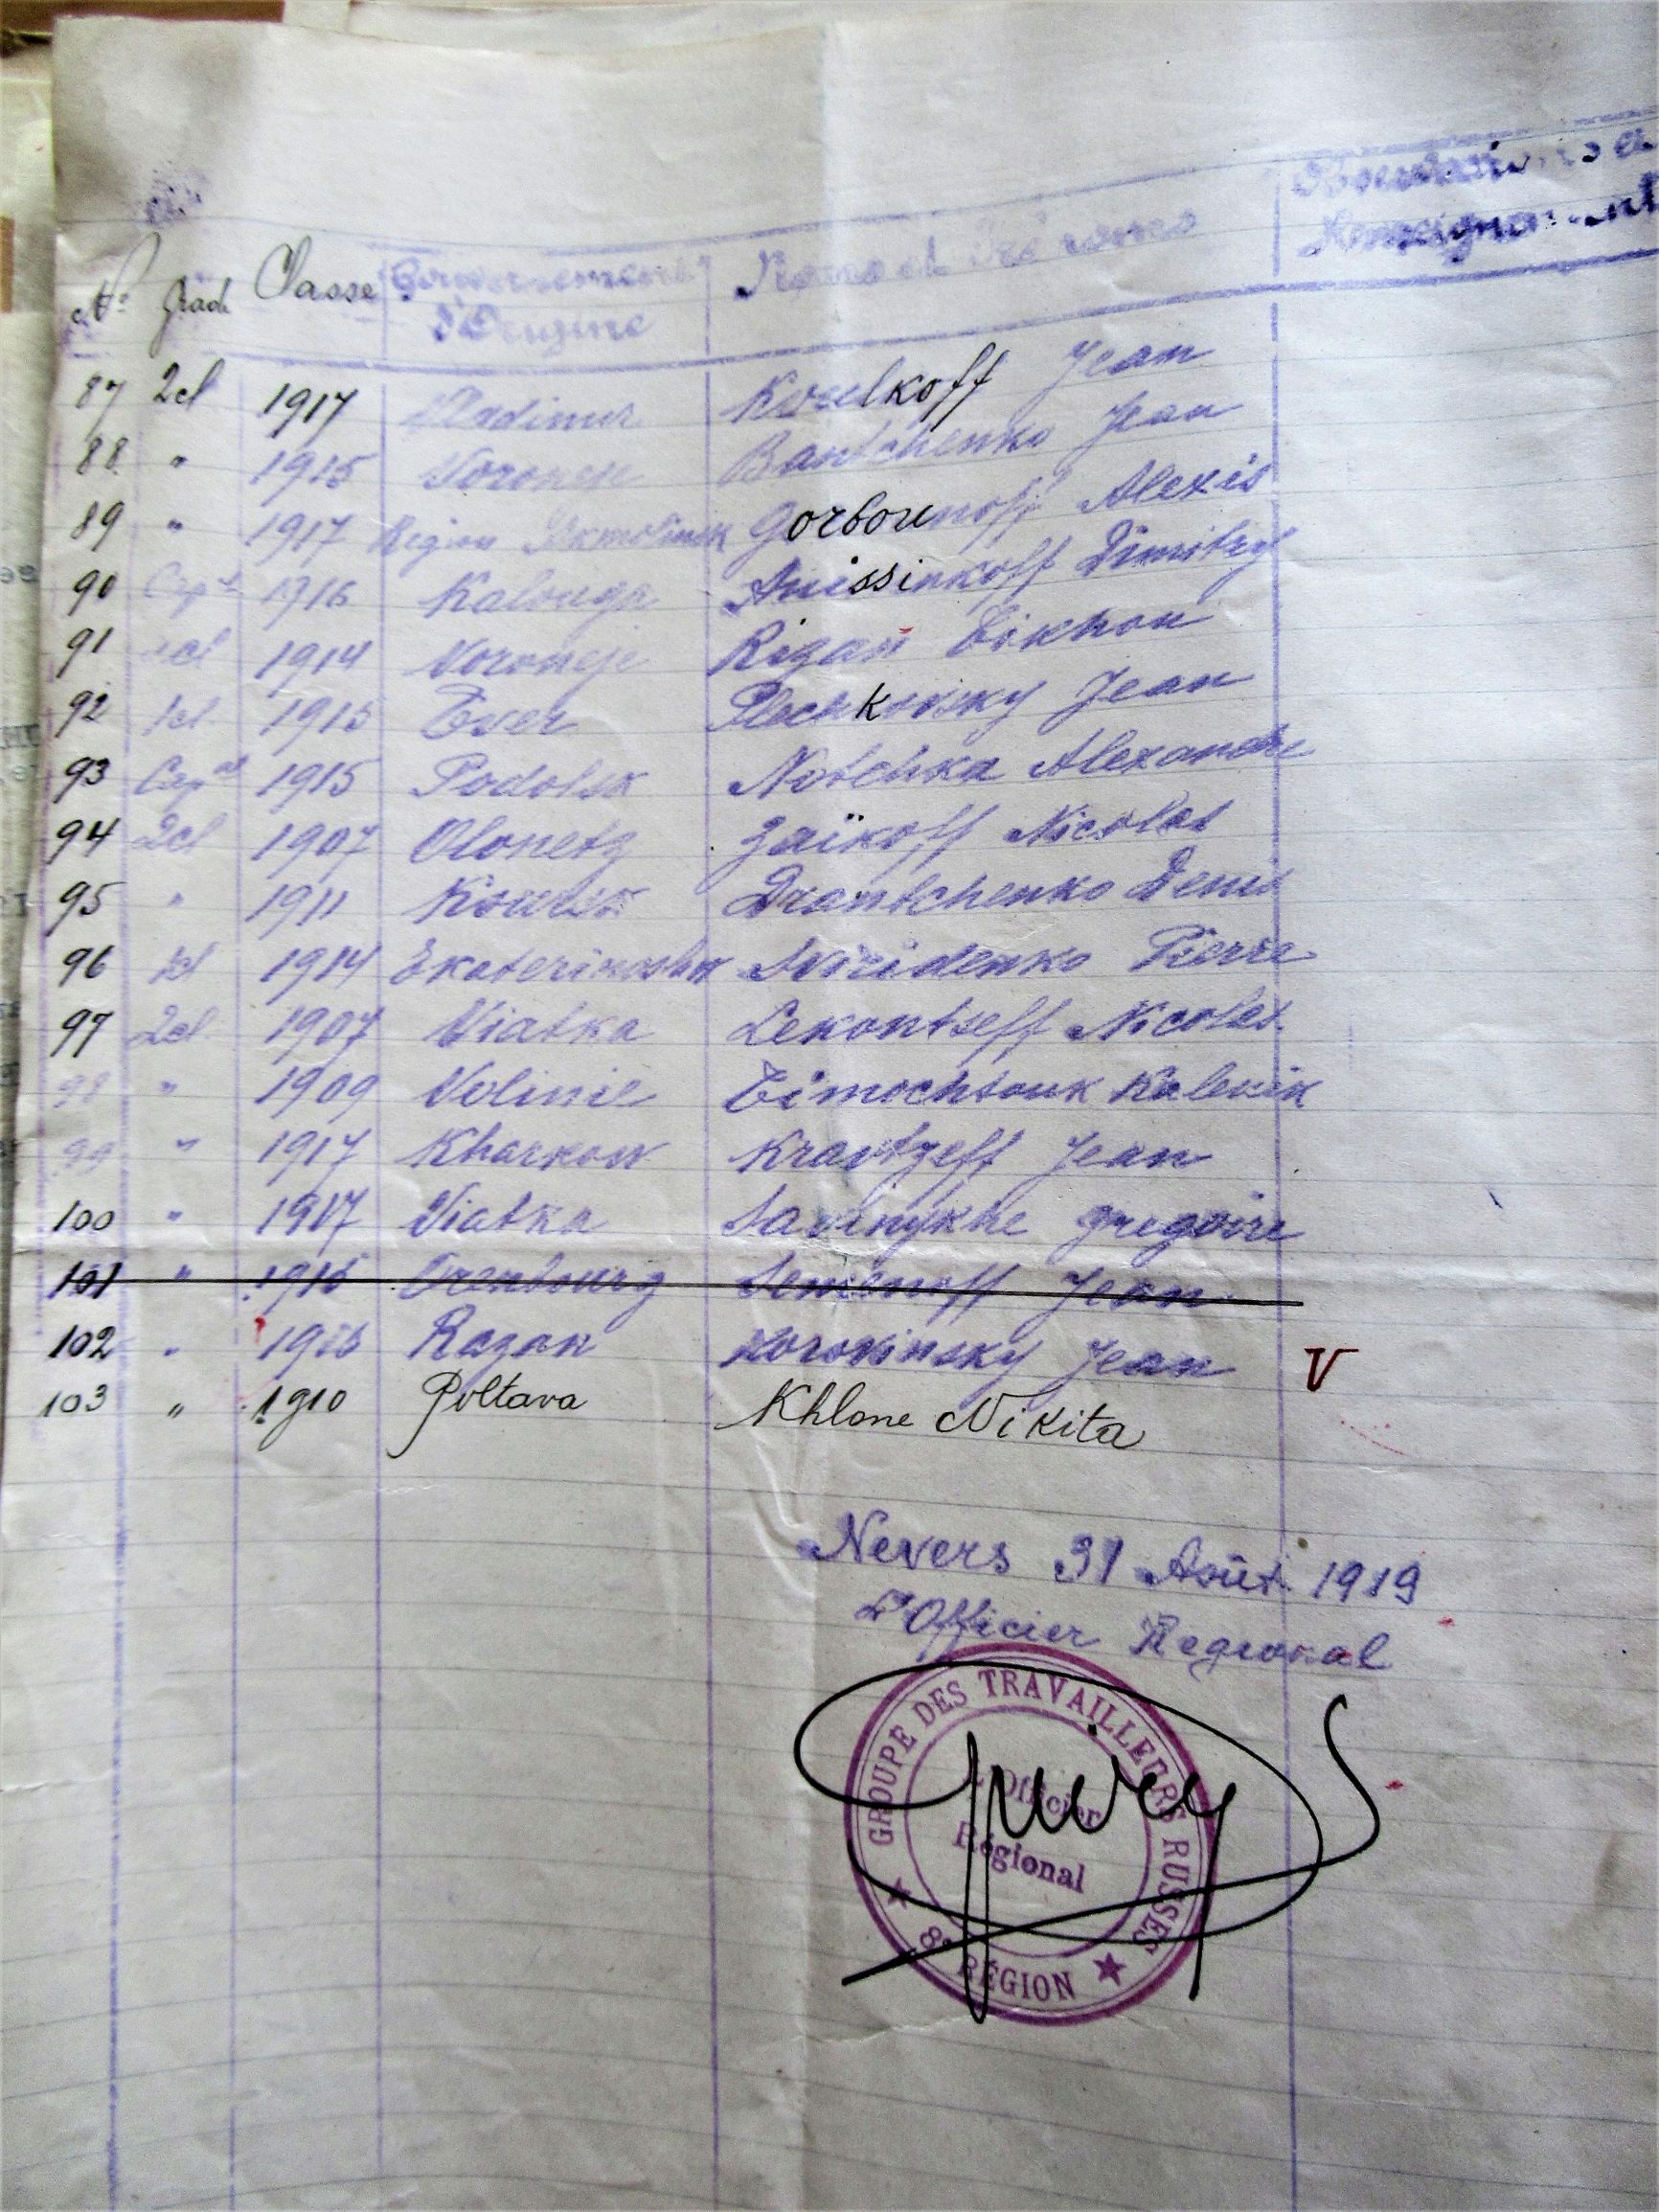 Nº Grade Classe Gouvernement d'Origine Noms et Prénoms Renseignements
87 2cl 1917 Vladimir Koselkoff Jean
88 " 1915 Voroneje Bantchenko Jean
89 " 1917 Région Akmolinsk Gorbounoff Alexis
90 Cap al 1916 Kalouga Anissinkoff Dimitry
91 1914 Voroneje Rizan Tikhon
92 1cl 1915 Tver Plechkovsky Jean
93 Cap al 1915 Podolsk Notchka Alexandre
94 2cl 1907 Olonetz Zaïkoff Nicolas
95 " 1911 Koursk Drantchenko Denis
96 1cl 1914 Ekaterinoslav Sviridenko Pierre
97 2cl 1907 Viatka Lekontseff Nicolas
98 " 1909 Volinie Timochtouk
99 " 1917 Kharkow Kravtzeff Jean
100 " 1917 Viatka Savinykhe Gregoire
101 " 1916 Orenbourg Semenoff Jean
102 " Kazan Jean V
103 " 1910 Poltava Khlone Nikita
Nevers 31 Août 1919
L'Officier Regional
GROUPE DES TRAVAILLEURS RUSSES
L'Officier
Régional
8e RÉGION